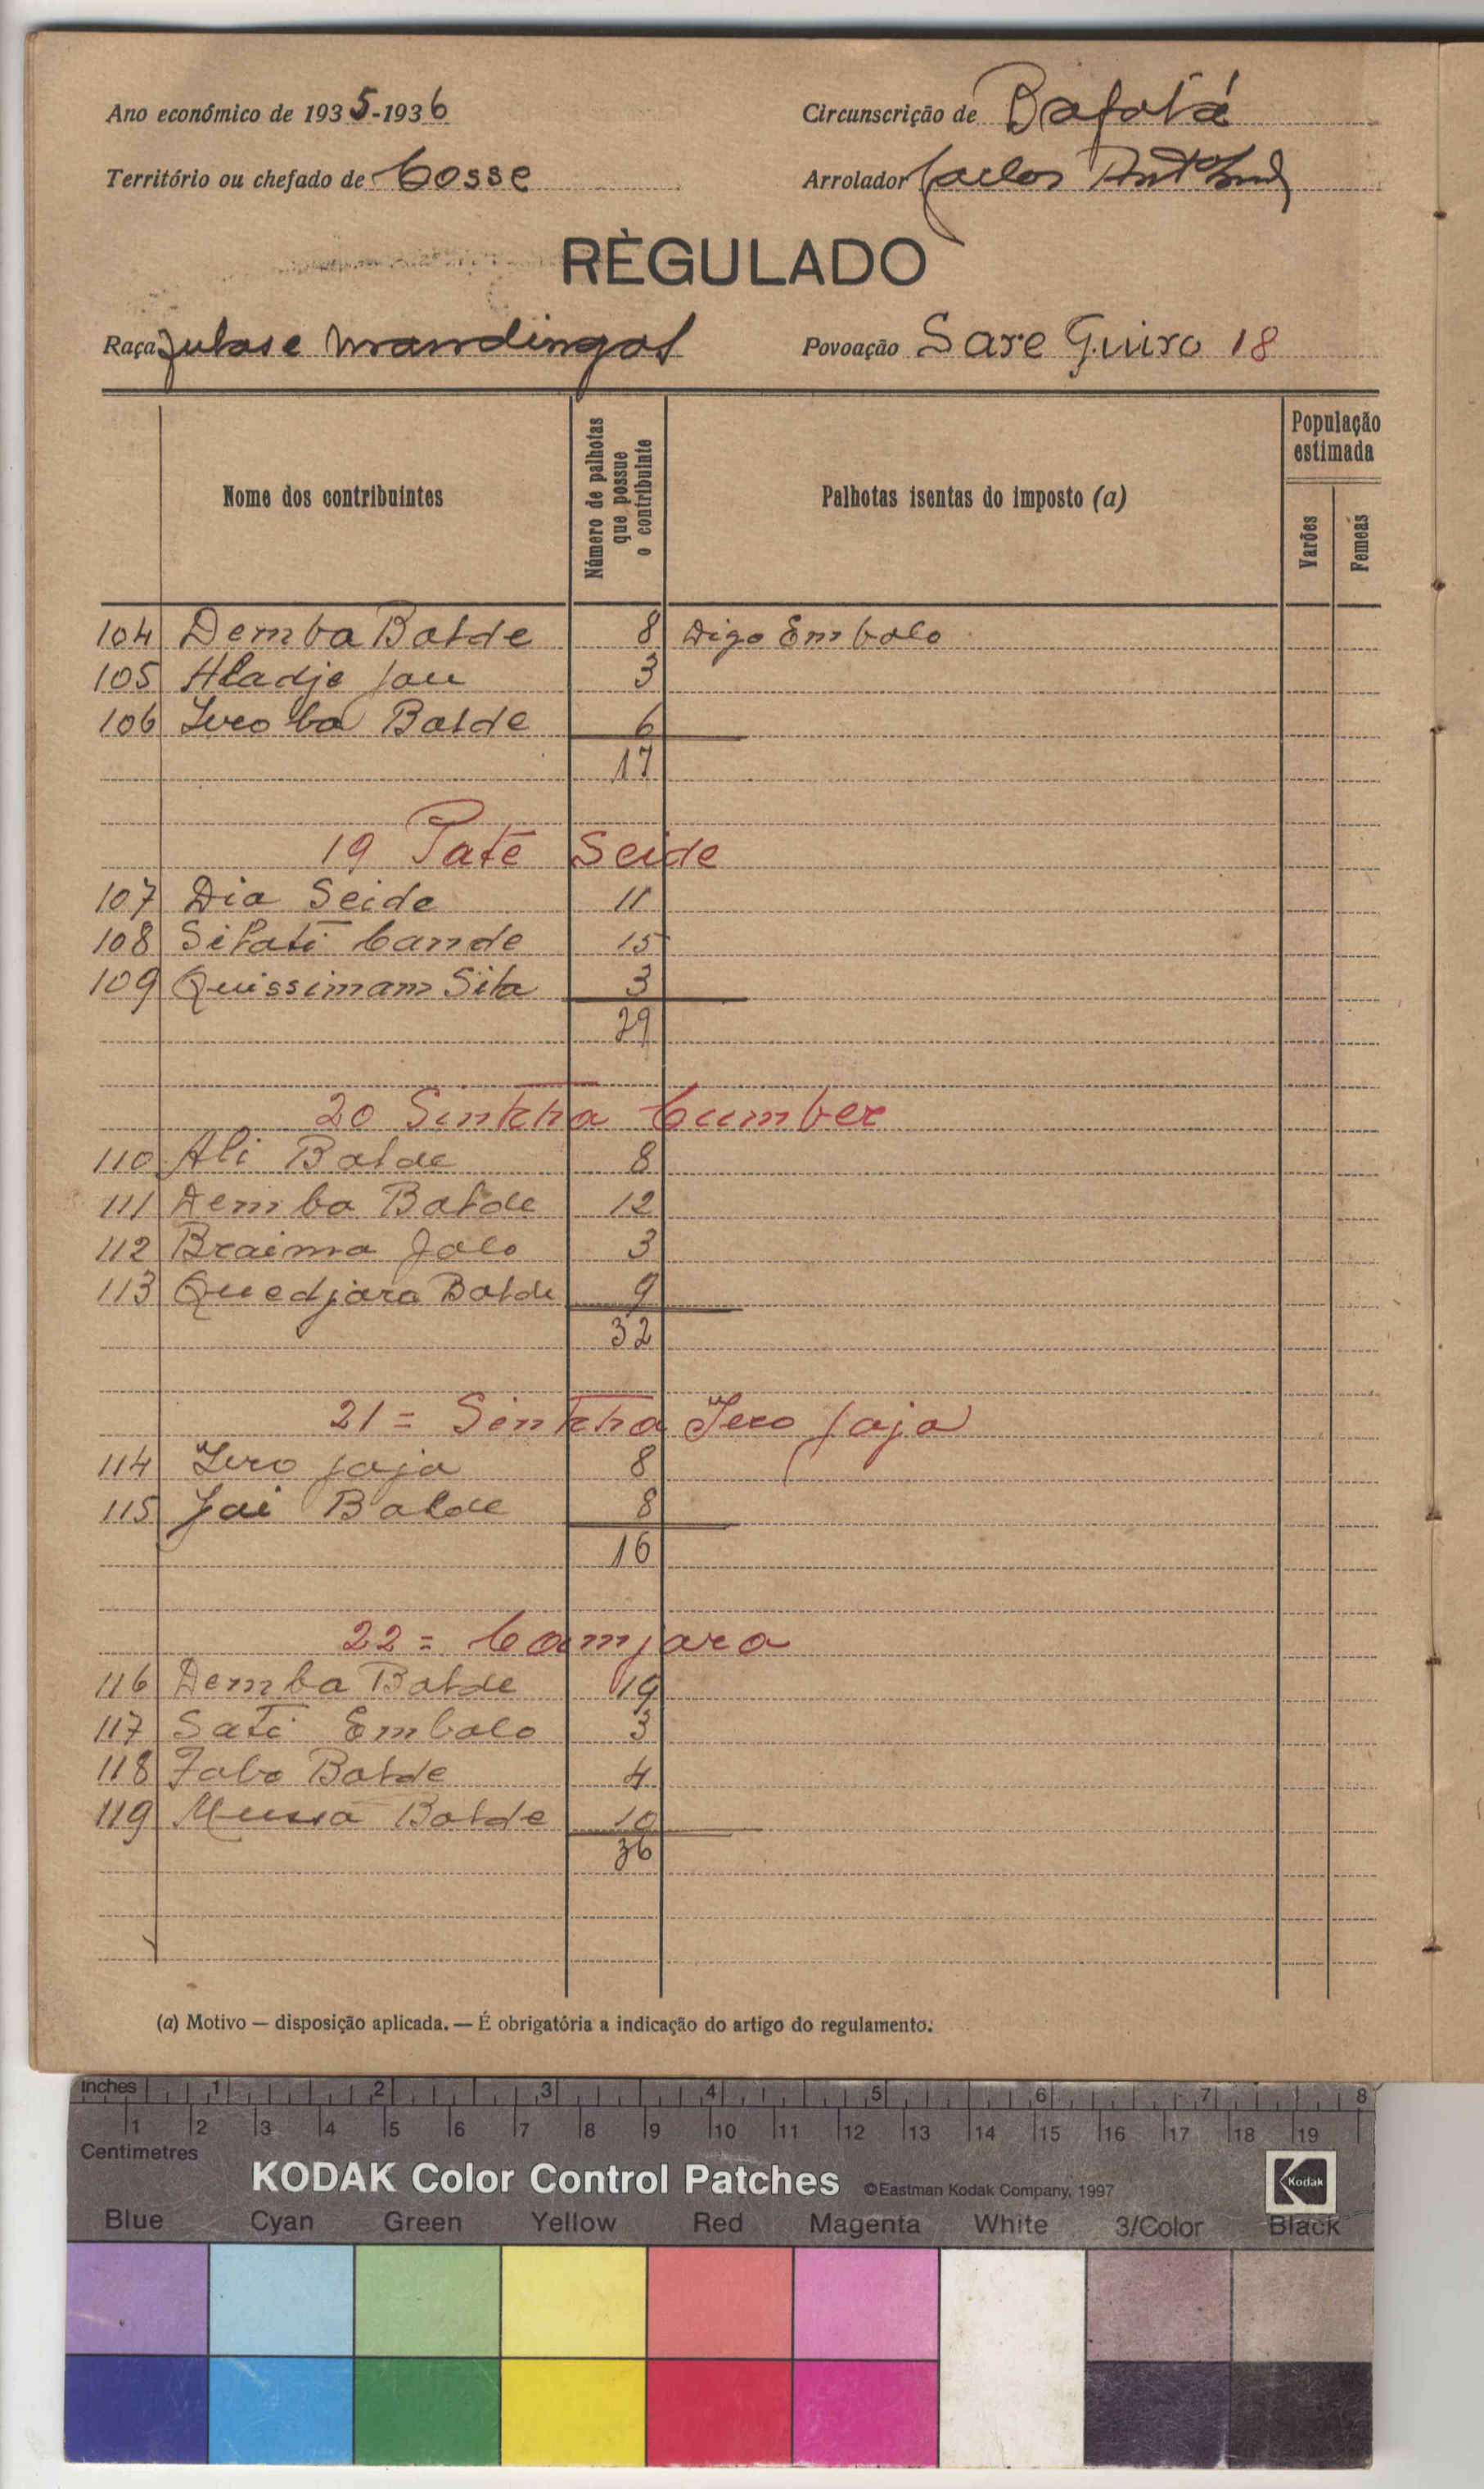 Ano económico de 1935-1936
Circunscrição de Bafatá
Território ou chefado de Cosse
Arrolador Carlos
RÈGULADO
Raça fulas e mandingas
Povoação Sare Guiro 18
Nome dos contribuintes
Número de palhotas que possue o contribuinte
Palhotas isentas do imposto (a)
População estimada
Varões
Femeas
104 Demba Balde 8 Digo Embalo
105 Aladje Jau 3
106 Iero ba Balde 6
17
19 Pate Seide
107 Dia Seide 11
108 Silati Cande 15
109 Quissimam Sila 3
29
20 Sintcha Cumber
110 Ali Balde 8
111 Demba Balde 12
112 Braima Jalo 3
113 Quedjara Balde 9
32
21 = Sintcha Iero Jaja
114 Iero Jaja 8
115 Jai Balde 8
16
22 = Camjara
116 Demba Balde 19
117 Sati Embalo 3
118 Fabo Balde 4
119 Mussa Balde 10
36
(a) Motivo — disposição aplicada. — É obrigatória a indicação do artigo do regulamento.
Inches 1 2 3 4 5 6 7 8
1 2 3 4 5 6 7 8 9 10 11 12 13 14 15 16 17 18 19
Centimetres
KODAK Color Control Patches ©Eastman Kodak Company, 1997 Kodak
Blue Cyan Green Yellow Red Magenta White 3/Color Black